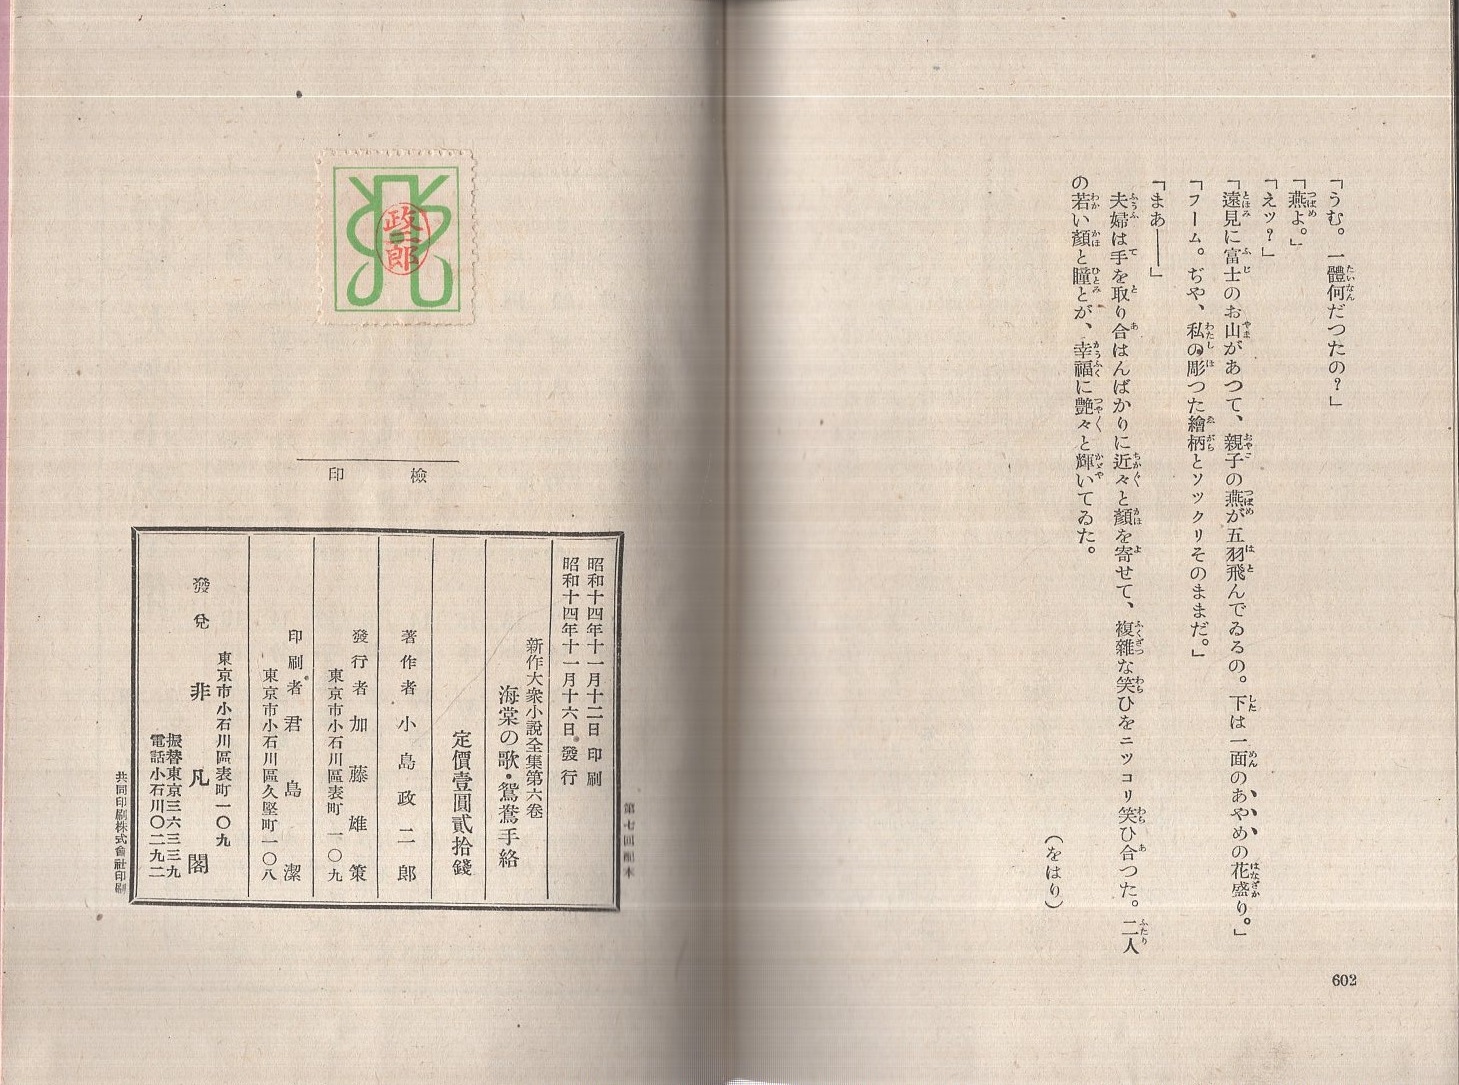 「うむ。一體何だつたの？」
「燕よ。」
「えッ？」
「遠見に富士のお山があつて、親子の燕が五羽飛んでゐるの。下は一面のあやめの花盛り。」
「フーム。ぢや、私の彫つた繪柄とソックリそのままだ。」
「まあ――」
夫婦は手を取り合はんばかりに近々と顏を寄せて、複雜な笑ひをニツコリ笑ひ合つた。二人
の若い顏と瞳とが、幸福に艶々と輝いてゐた。
（をはり）
602
政二郎
檢印
第七回配本
昭和十四年十一月十二日 印刷
昭和十四年十一月十六日 發行
新作大衆小說全集第六卷
海棠の歌・鴛鴦手絡
定價壹圓貳拾錢
著作者 小島政二郎
發行者 加藤雄策
東京市小石川區表町一〇九
印刷者 君島潔
東京市小石川區久堅町一〇八
東京市小石川區表町一〇九
發兌 非凡閣
振替東京三六三三九
電話小石川〇二九二
共同印刷株式會社印刷